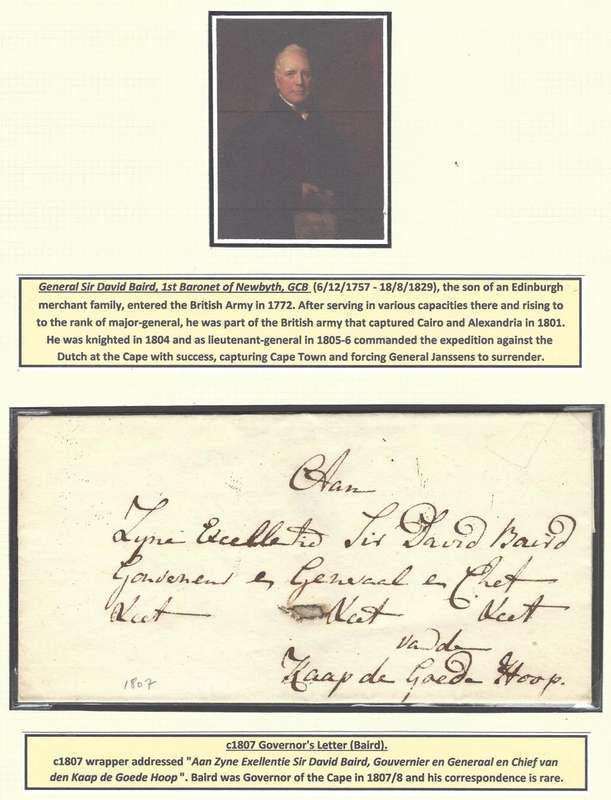 General Sir David Baird, 1st Baronet of Newbyth, GCB (6/12/1757 - 18/8/1829), the son of an Edinburgh
merchant family, entered the British Army in 1772. After serving in various capacities there and rising to
to the rank of major-general, he was part of the British army that captured Cairo and Alexandria in 1801.
He was knighted in 1804 and as lieutenant-general in 1805-6 commanded the expedition against the
Dutch at the Cape with success, capturing Cape Town and forcing General Janssens to surrender.
Aan
Zyne Excellentie Sir David Baird
Gouverneur en Generaal en Chef
van de
Kaap de Goede Hoop.
1807
c1807 Governor's Letter (Baird).
c1807 wrapper addressed "Aan Zyne Exellentie Sir David Baird, Gouvernier en Generaal en Chief van
den Kaap de Goede Hoop". Baird was Governor of the Cape in 1807/8 and his correspondence is rare.